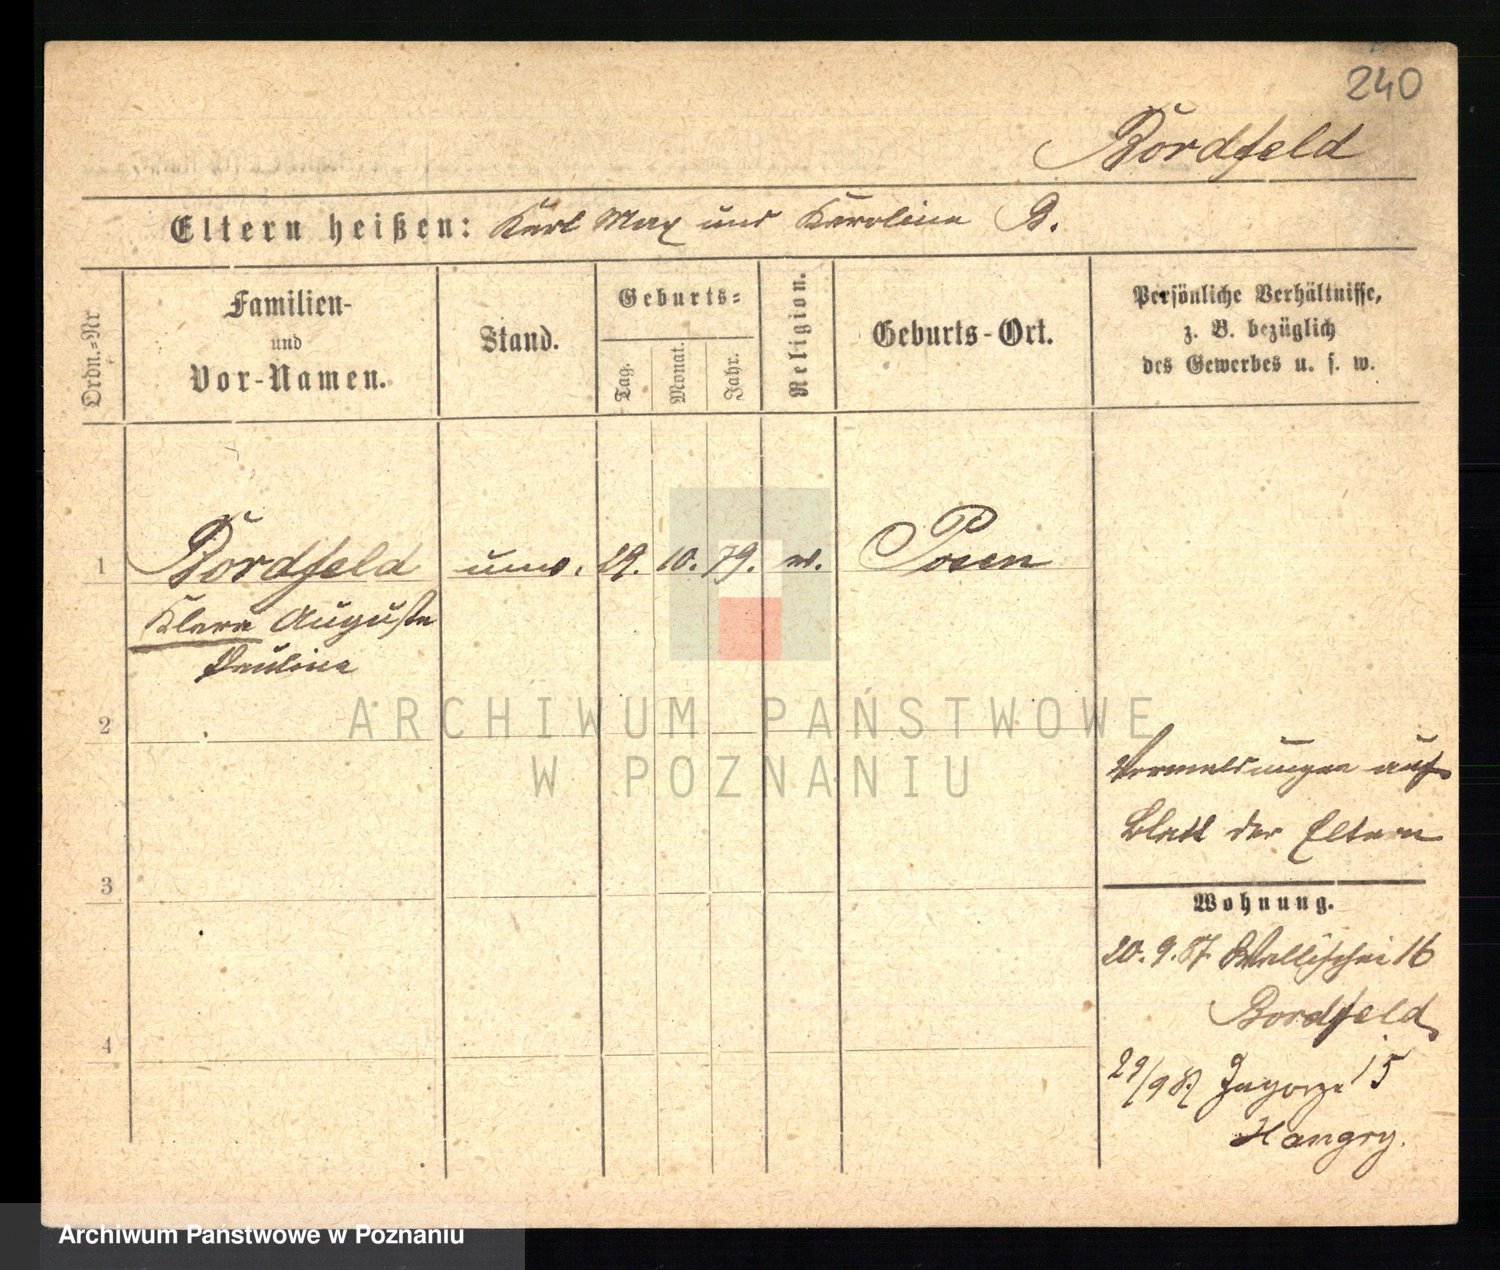 240
Bordfeld
Eltern heißen: Karl Max und Karoline B.
Ordn.-Nr
Familien-
und
Vor-Namen.
Stand.
Geburts-
Tag.
Monat.
Jahr.
Religion.
Geburts-Ort.
Persönliche Verhältnisse,
z. B. bezüglich
des Gewerbes u. s. w.
1 Bordfeld unv. 29. 10. 79. Posen
Klara Auguste
Pauline
2
ARCHIWUM PAŃSTWOWE
W POZNANIU
auf
Blatt der Eltern
3
Wohnung.
20. 9. 87. Wallischei 16
Bordfeld
4
29/9 87 Zagorze 15
Hangry.
Archiwum Państwowe w Poznaniu